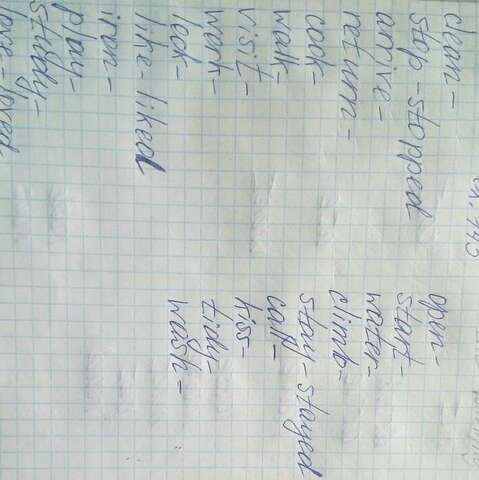 145
clean-
stop-stopped
arrive-
return-
cook-
walk-
visit-
work-
like-liked
iron-
play-
study-
love-loved
open-
start-
water-
climb-
stay-stayed
call-
kiss-
tidy-
wash-